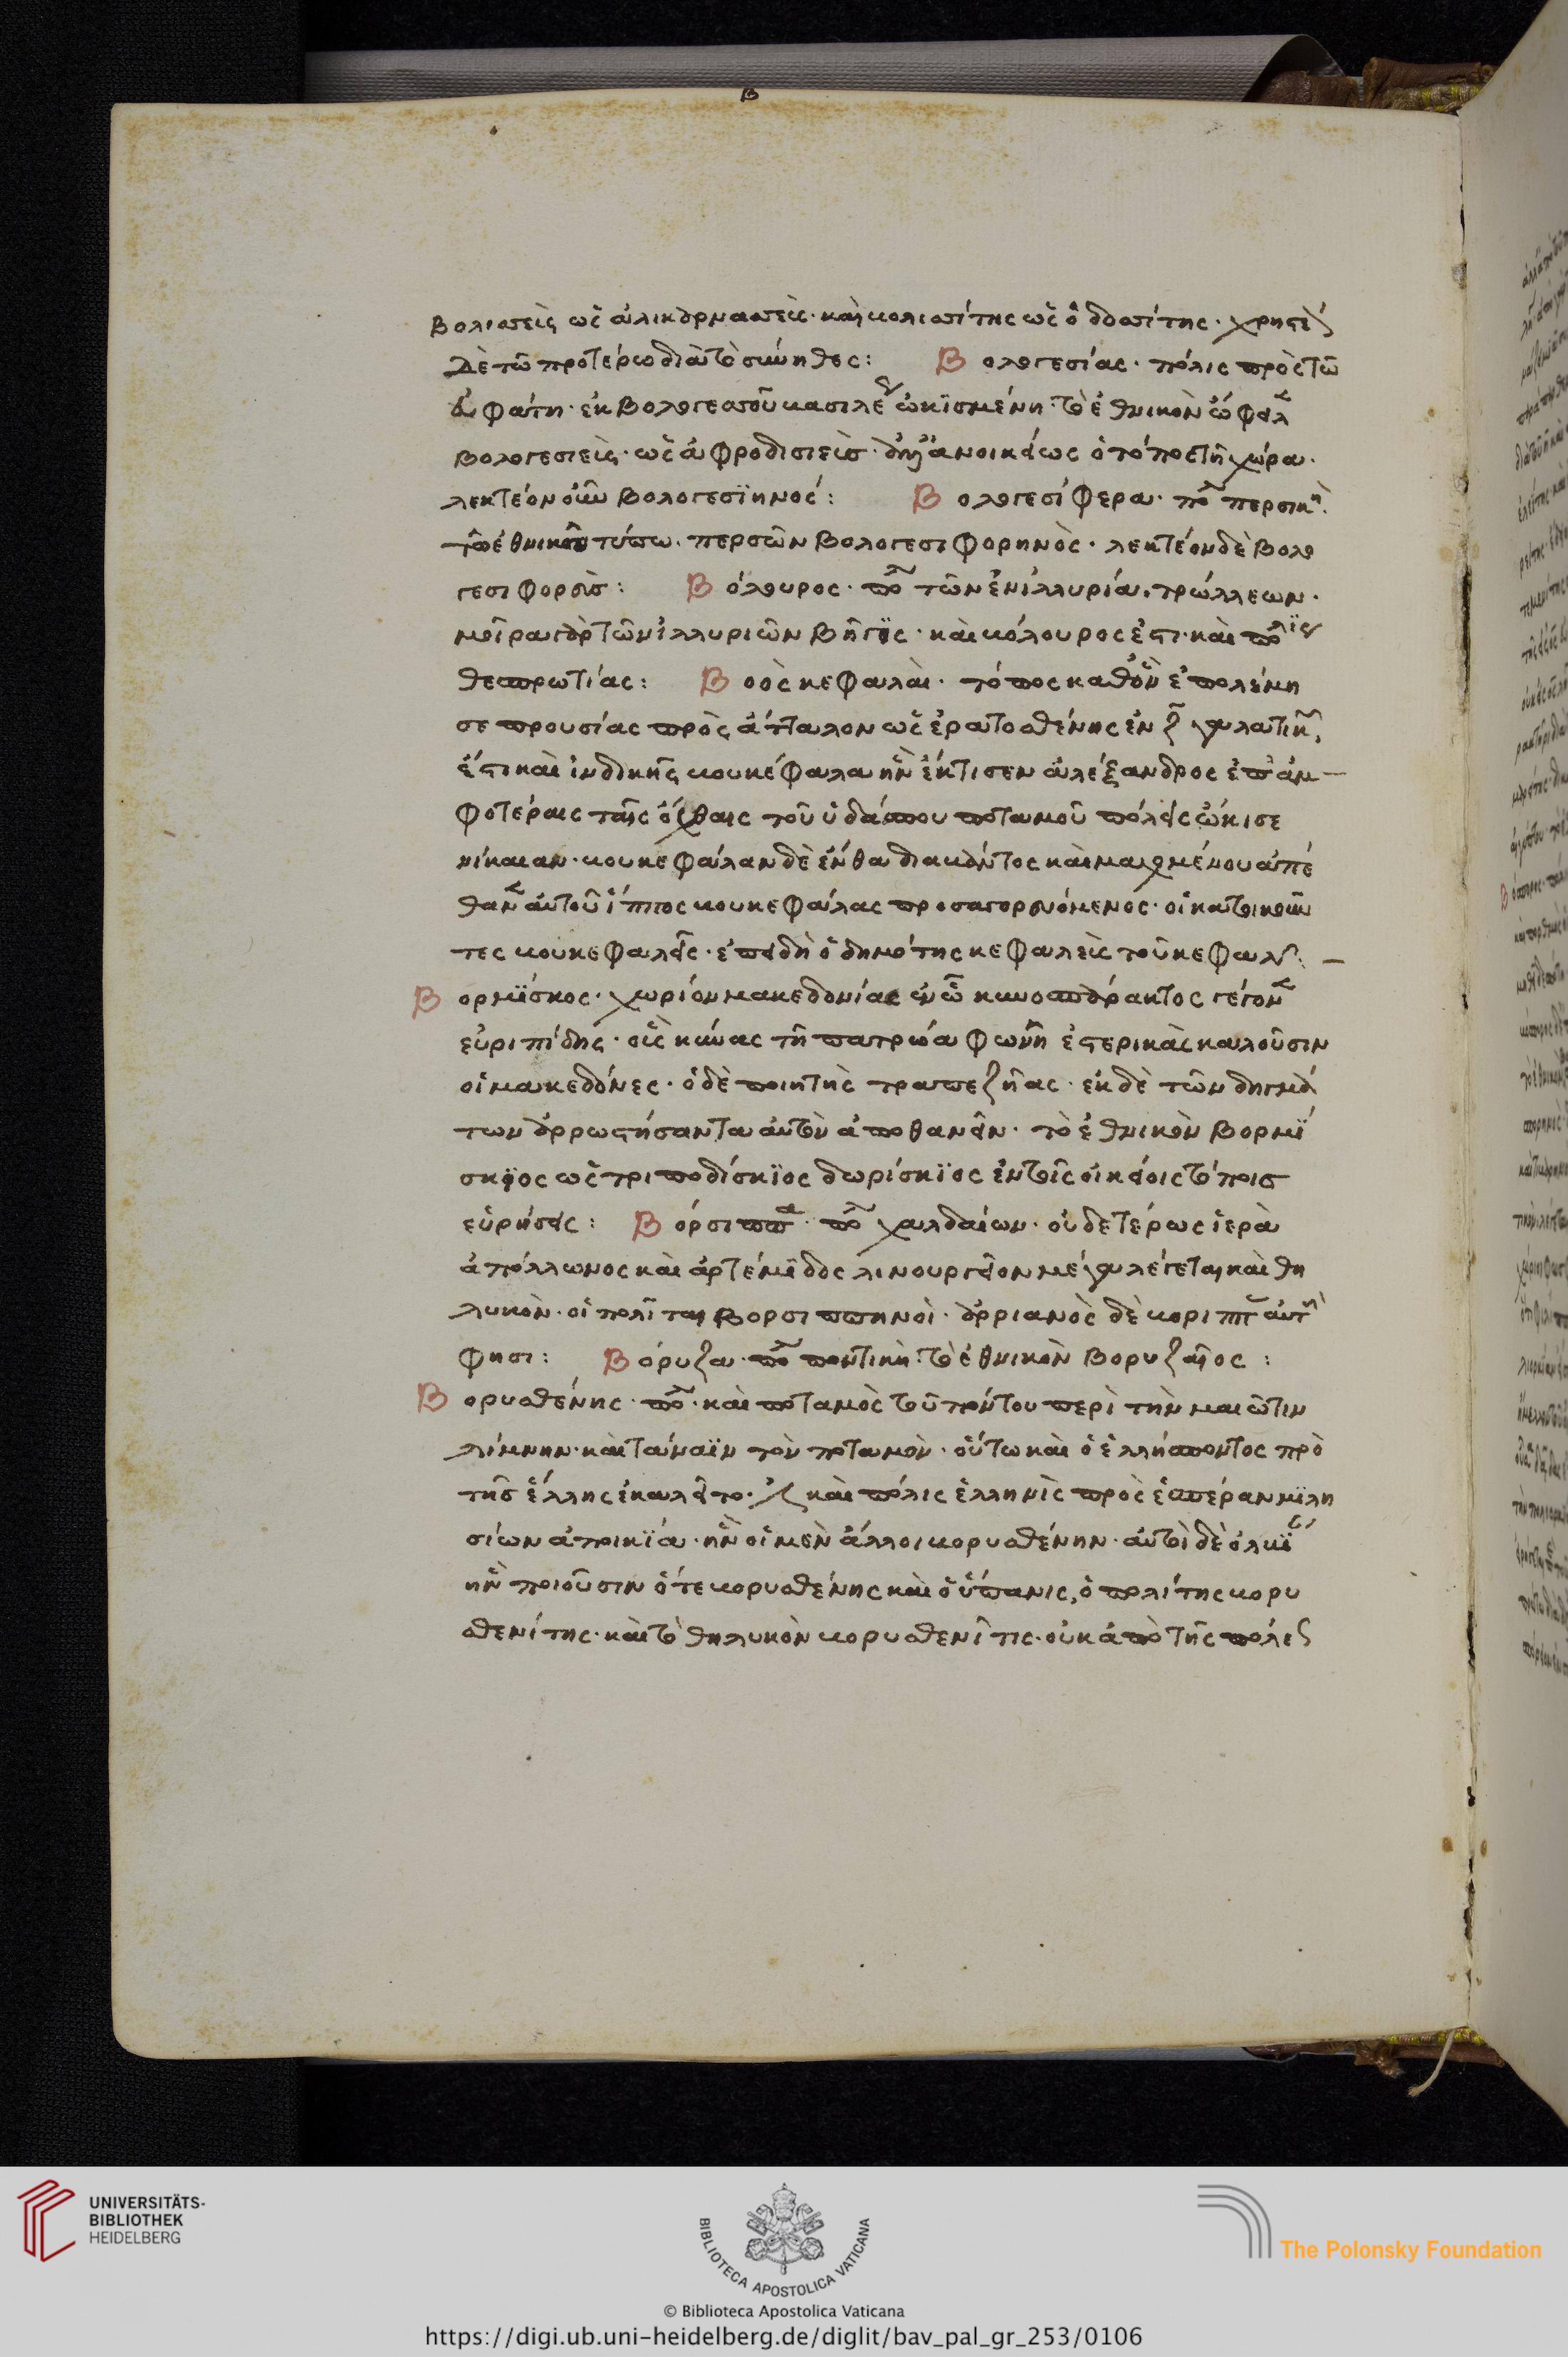 β
βολισσεὺς ὡς ἁλικαρνασσεύς· καὶ βολισσίτης ὡς ὁδοσίτης· χρηστέον
δὲ τῶ προτέρω διὰ τὸ σύνηθες: Βολογεσίας· πόλις πρὸς τῶ
εὐφράτη· ἐκ βολογεσου βασιλέως ὠκισμένη· τὸ ἐθνικὸν ὤφειλε
βολογεσιεὺς· ὡς ἀφροδισιεὺς· δι᾽ ἀνοικείως ὁ τόπος τῆ χώρα·
λεκτέον οὖν βολογεσϊηνός: Βολογεσίφερα· πό περσικὴ·
τῶ ἐθνικῶ τύπω περσῶν βολογεσιφορηνὸς· λεκτέον δὲ βολο
γεσιφορεὺς: Βόλουρος· πό τῶν ἐν ἰλλυρία τρώλλεων·
μοῖρα γὰρ τῶν ἰλλυριῶν οὗτος· καὶ βόλουρος ἔστι καὶ πόλις
θεσπρωτίας: Βοὸς κεφαλαὶ· τόπος καθ᾽ ὃν ἐπολέμη
σε προυσίας πρὸς ἄτταλον ὡς ἐρατοσθένης ἐν ζ γαλατικῶν
ἔστι καὶ ἰνδικῆς βουκέφαλα ἣν ἔκτισεν ἀλέξανδρος ἐπ᾽ ἀμ
φοτέραις ταῖς ὄχθαις τοῦ ὑδάσπου ποταμοῦ πόλεις ὤκισε
νίκαιαν· βουκεφάλαν δὲ ἔνθα διαβάντος καὶ μαχομένου ἀπέ
θανεν αὐτοῦ ἵππος βουκεφάλας προσαγορευόμενος· οἱ κατοικοῦν
τες βουκεφαλεῖς· ἐπειδὴ ὁ δημότης κεφαλεὺς τοῦ κεφαλῆς
Βορμϊσκος· χωρίον μακεδονίας ἐν ὧ κυνοσπάρακτος γέγονεν
εὐριπίδης· οὓς κύνας τῆ πατρώα φωνῆ ἐστερικὰς καλοῦσιν
οἱ μακεδόνες· ὁ δὲ ποιητὴς τραπεζῆας· ἐκ δὲ τῶν δηγμά
των ἀρρωστήσαντα αὐτὸν ἀποθανεῖν· τὸ ἐθνικὸν βορμί
σκϊος ὡς τριποδίσκϊος δωρίσκϊος ἐν τοῖς οἰκείοις τόποις
εὑρήσεις: Βόρσιππα· πό χαλδαίων· οὐδετέρως ἱερὰ
ἀπόλλωνος καὶ ἀρτέμιδος λινουργεῖον μέγα λέγεται καὶ θη
λυκὸν· οἱ πολῖται βορσιππηνοὶ· ἀρριανὸς δὲ βοριππ αὐτὴν
φησι: Βόρυζα· πό ποντικὴ· τὸ ἐθνικὸν βορυζαῖος:
Βορυσθένης· πό· καὶ ποταμὸς τοῦ πόντου περὶ τὴν μαιῶτιν
λίμνην· καὶ τάναϊν τὸν ποταμὸν· οὕτω καὶ ὁ ἑλλήσποντος πρὸ
τῆς ἕλλης ἐκαλεῖτο· ἔστι καὶ πόλις ἑλληνὶς πρὸς ἑσπέραν μϊλη
σίων ἀποικϊά· ἣν οἱ μὲν ἄλλοι βορυσθένην· αὐτοὶ δὲ ὀλβΐ
ην ποιοῦσιν ὅ τε βορυσθένης καὶ ὁ ὕπανις, ὁ πολίτης βορυ
σθενίτης· καὶ τὸ θηλυκὸν βορυσθενῖτις· οὐκ ἀπὸ τῆς πόλεως
UNIVERSITÄTS-
BIBLIOTHEK
HEIDELBERG
BIBLIOTECA APOSTOLICA VATICANA
The Polonsky Foundation
© Biblioteca Apostolica Vaticana
https://digi.ub.uni-heidelberg.de/diglit/bav_pal_gr_253/0106